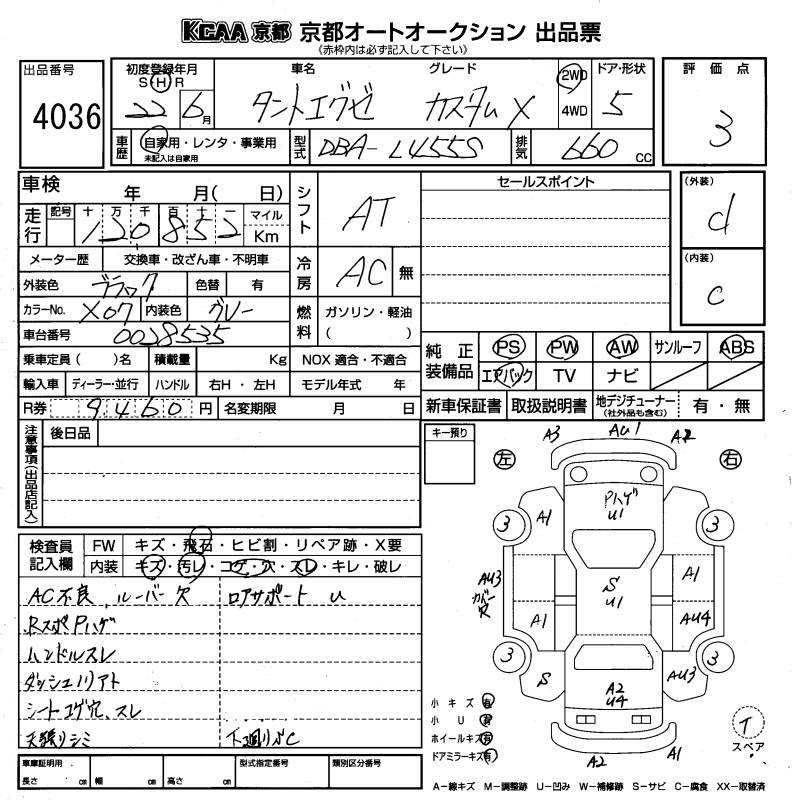 KCAA 京都 京都オートオークション 出品票
(赤枠内は必ず記入して下さい)
出品番号
4036
初度登録年月
S H R
22 6月
車名
タントエグゼ
グレード
カスタム X
2WD
4WD
ドア・形状
5
評価点
3
車歴
自家用・レンタ・事業用
未記入は自家用
型式
DBA-L455S
排気
660 CC
車検 年 月( 日)
走行
記号 十 万 千 百 十 一
120852
マイル
Km
シフト
AT
冷房
AC 無
セールスポイント
(外装)
d
(内装)
c
メーター歴 交換車・改ざん車・不明車
外装色 ブラック 色替 有
カラーNo. X07 内装色 グレー
車台番号 0028535
燃料
ガソリン・軽油
( )
乗車定員( )名 積載量 Kg NOX 適合・不適合
輸入車 ディーラー・並行 ハンドル 右H・左H モデル年式 年
R券 9460 円 名変期限 月 日
純正装備品
PS PW AW サンルーフ ABS
エアバック TV ナビ
新車保証書 取扱説明書 地デジチューナー(社外品も含む) 有・無
注意事項(出品店記入)
後日品
キー預り
検査員記入欄
FW キズ・飛石・ヒビ割・リペア跡・X要
内装 キズ・汚レ・コゲ・穴・スレ・キレ・破レ
AC不良 ルーバー欠 ロアサポート U
RスポPハゲ
ハンドルスレ
ダッシュノリアト
シートコゲ穴、スレ
天張りシミ 下廻りsC
車庫証明用
長さ cm 幅 cm 高さ cm
型式指定番号
類別区分番号
A3 AU1 A2
左 右
Pハゲ
U1
A1
3 3
AU3
カバー欠
S
U1
A1
A1 AU4
3 3
S
A2
U4
AU3
A2 A1
小キズ 有
小U 有
ホイールキズ 有
ドアミラーキズ 有
T
スペア
A-線キズ M-調整跡 U-凹み W-補修跡 S-サビ C-腐食 XX-取替済